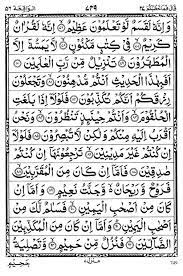 قَالَ فَمَا خَطْبُكُمْ ٢٧ ٨٣٩ الْوَاقِعَة ٥٦
وَاِنَّهٗ لَقَسَمٌ لَّوْ تَعْلَمُوْنَ عَظِيْمٌ ۙ اِنَّهٗ لَقُرْاٰنٌ
كَرِيْمٌ ۙ فِيْ كِتٰبٍ مَّكْنُوْنٍ ۙ لَّا يَمَسُّهٗٓ اِلَّا
الْمُطَهَّرُوْنَ ؕ تَنْزِيْلٌ مِّنْ رَّبِّ الْعٰلَمِيْنَ
اَفَبِهٰذَا الْحَدِيْثِ اَنْتُمْ مُّدْهِنُوْنَ ۙ وَتَجْعَلُوْنَ
رِزْقَكُمْ اَنَّكُمْ تُكَذِّبُوْنَ فَلَوْلَآ اِذَا بَلَغَتِ
الْحُلْقُوْمَ ۙ وَاَنْتُمْ حِيْنَئِذٍ تَنْظُرُوْنَ ۙ وَنَحْنُ
اَقْرَبُ اِلَيْهِ مِنْكُمْ وَلٰكِنْ لَّا تُبْصِرُوْنَ فَلَوْلَآ
اِنْ كُنْتُمْ غَيْرَ مَدِيْنِيْنَ ۙ تَرْجِعُوْنَهَآ اِنْ
كُنْتُمْ صٰدِقِيْنَ فَاَمَّآ اِنْ كَانَ مِنَ الْمُقَرَّبِيْنَ ۙ
فَرَوْحٌ وَّرَيْحَانٌ ۙ وَّجَنَّتُ نَعِيْمٍ وَاَمَّآ اِنْ كَانَ
مِنْ اَصْحٰبِ الْيَمِيْنِ ۙ فَسَلٰمٌ لَّكَ مِنْ
اَصْحٰبِ الْيَمِيْنِ ؕ وَاَمَّآ اِنْ كَانَ مِنَ الْمُكَذِّبِيْنَ
الضَّآلِّيْنَ ۙ فَنُزُلٌ مِّنْ حَمِيْمٍ ۙ وَّتَصْلِيَةُ
جَحِيْمٍ